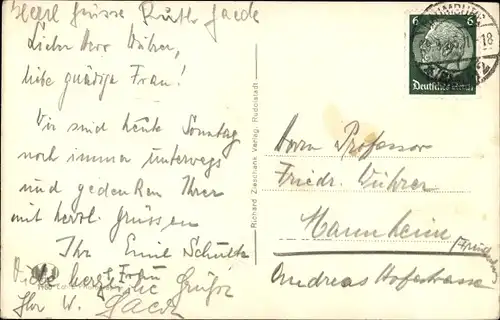 Herzl. Grüsse Ruth Jaede
Lieber Herr Wührer,
liebe gnädige Frau!
Wir sind heute Sonntag
noch immer unterwegs
und gedenken Ihrer
mit herzl. Grüssen
Ihr Emil Schulte
u. Frau
Viele herzliche Grüße
Ihr W. Jaede
Richard Zieschank Verlag, Rudolstadt
6 6
Deutsches Reich
NAUMBURG
-18
Herrn Professor
Friedr. Wührer
Mannheim
Andreas Hoferstrasse